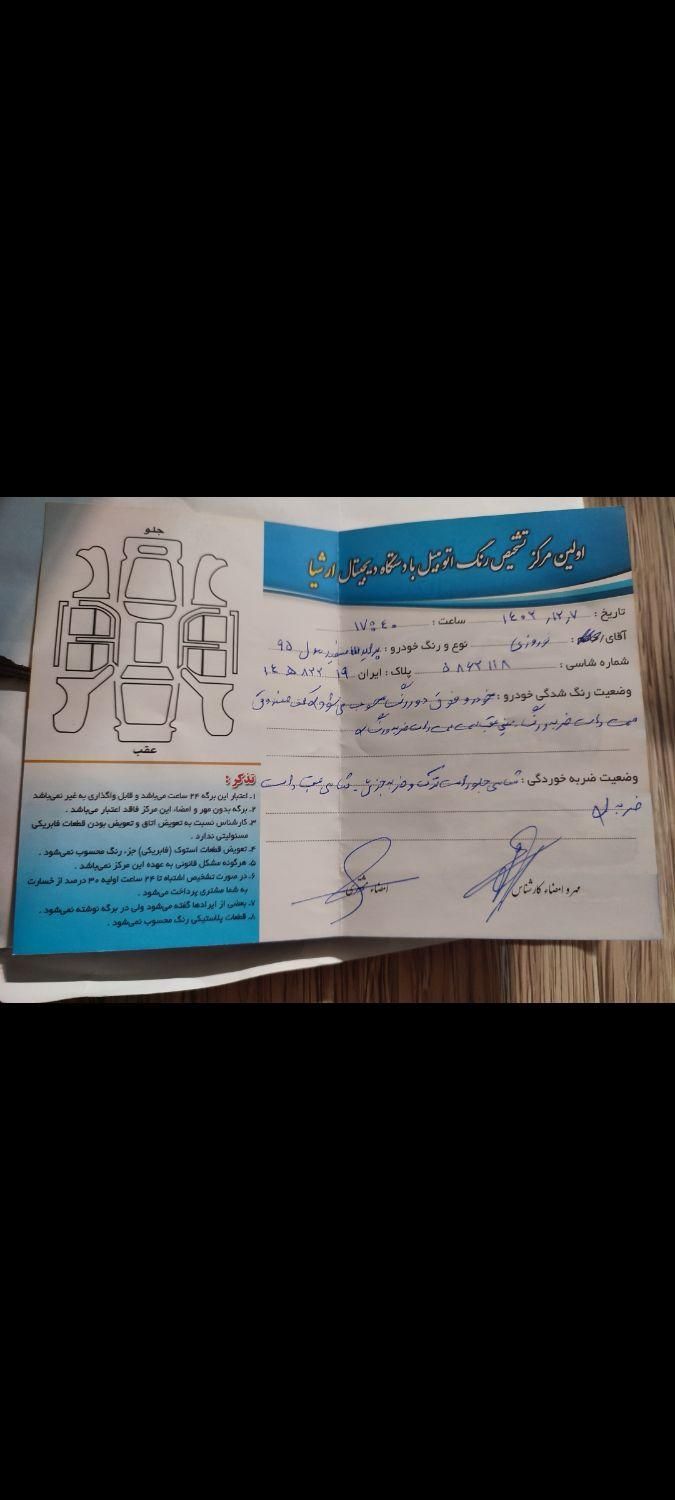 اولین مرکز تشخیص رنگ اتومبیل با دستگاه دیجیتال ارشیا
تاریخ : ۱۴۰۲,۱۲,۷ ساعت : ۱۷:۴۰
آقای/ نوروزی نوع و رنگ خودرو : پراید سفید مدل ۹۵
شماره شاسی : ۵۸۶۲۱۱۸ پلاک : ایران ۱۹
وضعیت رنگ شدگی خودرو : خودرو فوق دو رنگ محسوب می‌شود که کف صندوق
سمت راست ضربه و رنگ
وضعیت ضربه خوردگی : شاسی جلو راست ترک و ضربه جزئی شاسی عقب راست
ضربه
مهر و امضاء کارشناس
امضاء مشتری
جلو
عقب
تذکر :
۱. اعتبار این برگه ۲۴ ساعت می‌باشد و قابل واگذاری به غیر نمی‌باشد
۲. برگه بدون مهر و امضاء، این مرکز فاقد اعتبار می‌باشد .
۳. کارشناس نسبت به تعویض اتاق و تعویض بودن قطعات فابریکی
مسئولیتی ندارد .
۴. تعویض قطعات استوک (فابریکی) جزء رنگ محسوب نمی‌شود .
۵. هرگونه مشکل قانونی به عهده این مرکز نمی‌باشد .
۶. در صورت تشخیص اشتباه تا ۲۴ ساعت اولیه ۳۰ درصد از خسارت
به شما مشتری پرداخت می‌شود .
۷. بعضی از ایرادها گفته می‌شود ولی در برگه نوشته نمی‌شود .
۸. قطعات پلاستیکی رنگ محسوب نمی‌شود .